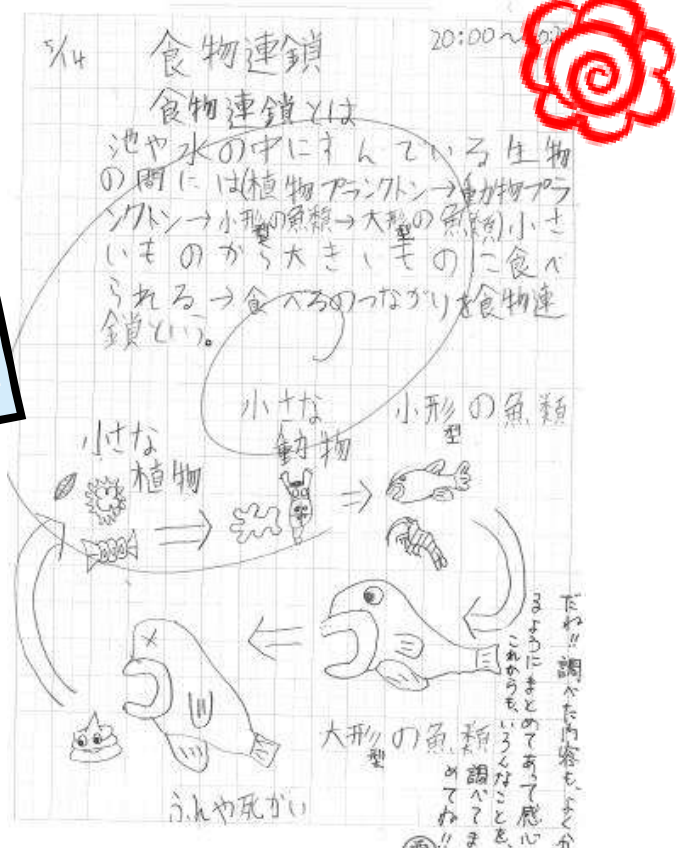 5/14 食物連鎖 20:00～
食物連鎖とは
池や水の中にすんでいる生物
の間には(植物プランクトン→動物プラ
ンクトン→小形の魚類→大形の魚類)小さ
型 型
いものから大きいものに食べ
られる→食べるのつながりを食物連
鎖という。
小さな
植物
小さな
動物
小形の魚類
型
大形の魚類
型
ふんや死がい
だね!!調べた内容も、よく分
るようにまとめてあって感心
これからも、いろんなことを、
調べてま
めてね!!